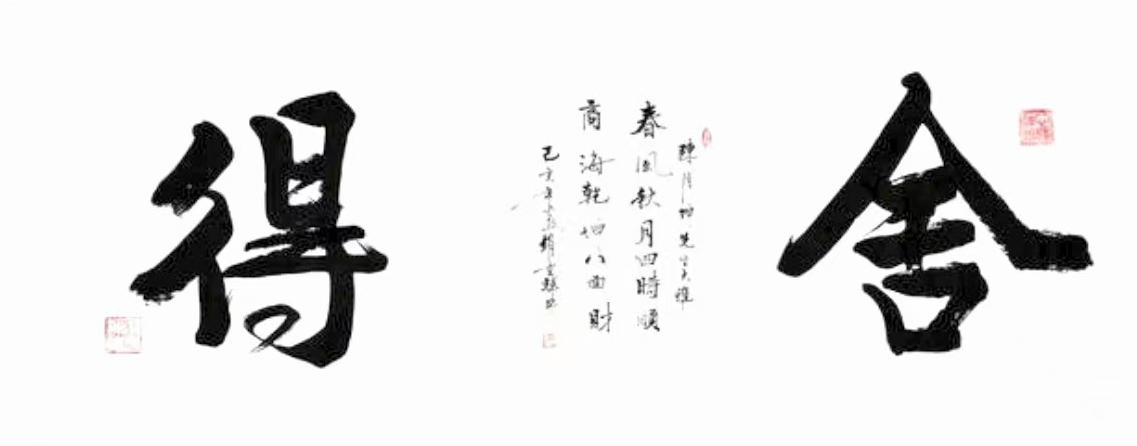 舍
陳月坤先生大雅
春風秋月四時順
商海乾坤八面財
己亥年
得